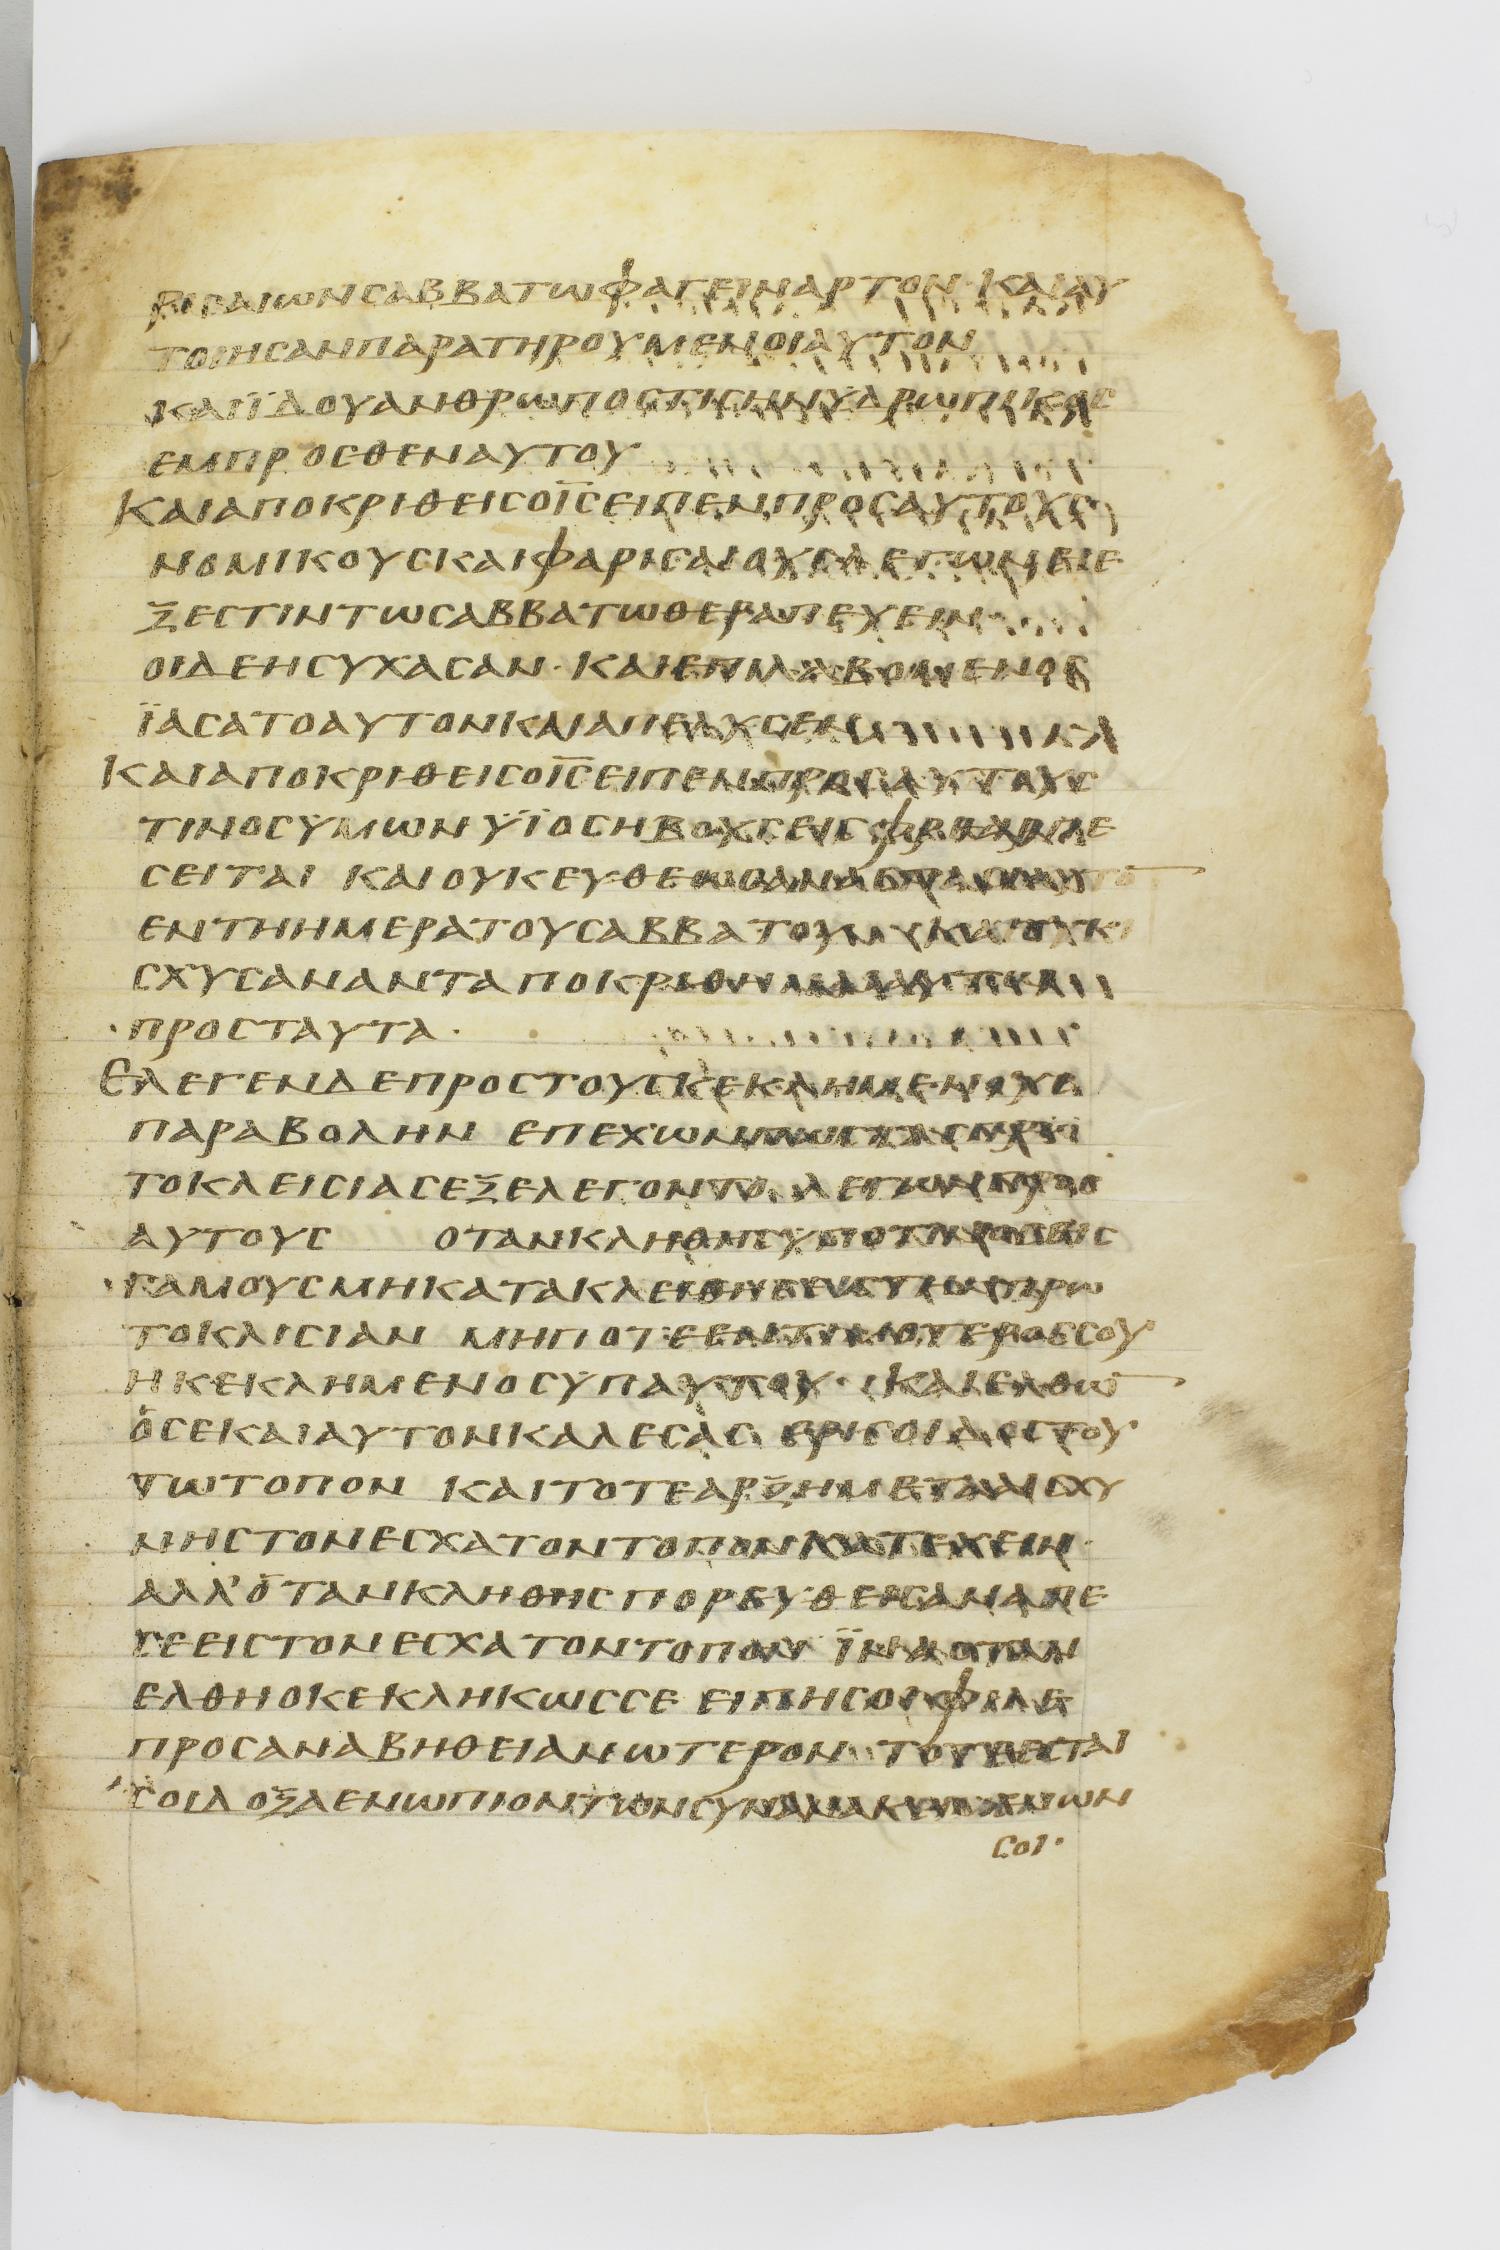 ΡΙϹΑΙΩΝϹΑΒΒΑΤΩΦΑΓΕΙΝΑΡΤΟΝ· ΚΑΙΑΥ
ΤΟΙΗϹΑΝΠΑΡΑΤΗΡΟΥΜΕΝΟΙΑΥΤΟΝ
ΚΑΙΪΔΟΥΑΝΘΡΩΠΟϹΤΙϹΗΝΥΔΡΩΠΙΚΟϹ
ΕΜΠΡΟϹΘΕΝΑΥΤΟΥ
ΚΑΙΑΠΟΚΡΙΘΕΙϹΟΙ̅Ϲ̅ΕΙΠΕΝΠΡΟϹΑΥΤΟΥϹ
ΝΟΜΙΚΟΥϹΚΑΙΦΑΡΙϹΑΙΟΥϹΛΕΓΩΝΕΙΕ
ΞΕϹΤΙΝΤΩϹΑΒΒΑΤΩΘΕΡΑΠΕΥΕΙΝ·
ΟΙΔΕΗϹΥΧΑϹΑΝ· ΚΑΙΕΠΙΛΑΒΟΜΕΝΟϹ
ΪΑϹΑΤΟΑΥΤΟΝΚΑΙΑΠΕΛΥϹΕΝ
ΚΑΙΑΠΟΚΡΙΘΕΙϹΟΙ̅Ϲ̅ΕΙΠΕΝΠΡΟϹΑΥΤΟΥϹ
ΤΙΝΟϹΥΜΩΝΥΪΟϹΗΒΟΥϹΕΙϹΦΡΕΑΡΠΕ
ϹΕΙΤΑΙ ΚΑΙΟΥΚΕΥΘΕΩϹΑΝΑϹΠΑϹΕΙΑΥΤΟ̅
ΕΝΤΗΗΜΕΡΑΤΟΥϹΑΒΒΑΤΟΥ
ϹΧΥϹΑΝΑΝΤΑΠΟΚΡΙΘΗΝΑΙ
·ΠΡΟϹΤΑΥΤΑ·
ΕΛΕΓΕΝΔΕΠΡΟϹΤΟΥϹΚΕΚΛΗΜΕΝΟΥϹ
ΠΑΡΑΒΟΛΗΝ ΕΠΕΧΩΝΠΩϹ
ΤΟΚΛΕΙϹΙΑϹΕΞΕΛΕΓΟΝΤΟ ΛΕΓΩΝΠΡΟϹ
ΑΥΤΟΥϹ ΟΤΑΝΚΛΗΘΗϹΥΠΟΤΙΝΟϹΕΙϹ
ΓΑΜΟΥϹΜΗΚΑΤΑΚΛΕΙΘΗϹΕΙϹΤΗΝΠΡΩ
ΤΟΚΛΙϹΙΑΝ ΜΗΠΟΤΕΕΝΤΙΜΟΤΕΡΟϹϹΟΥ
ΗΚΕΚΛΗΜΕΝΟϹΥΠΑΥΤΟΥ· ΚΑΙΕΛΘΩ̅
ΟϹΕΚΑΙΑΥΤΟΝΚΑΛΕϹΑϹ ΕΡΗϹΟΙΔΟϹΤΟΥ
ΤΩΤΟΠΟΝ ΚΑΙΤΟΤΕΑΡΞΗΜΕΤΑΑΙϹΧΥ
ΝΗϹΤΟΝΕϹΧΑΤΟΝΤΟΠΟΝΚΑΤΕΧΕΙΝ·
ΑΛΛ'ΟΤΑΝΚΛΗΘΗϹΠΟΡΕΥΘΕΙϹΑΝΑΠΕ
ϹΕΕΙϹΤΟΝΕϹΧΑΤΟΝΤΟΠΟΝ ΪΝΑΟΤΑΝ
ΕΛΘΗΟΚΕΚΛΗΚΩϹϹΕ ΕΙΠΗϹΟΙΦΙΛΕ
ΠΡΟϹΑΝΑΒΗΘΕΙΑΝΩΤΕΡΟΝ ΤΟΤΕΕϹΤΑΙ
ϹΟΙΔΟΞΑΕΝΩΠΙΟΝΤΩΝϹΥΝΑΝΑΚΕΙΜΕΝΩΝ
ϹΟΙ·